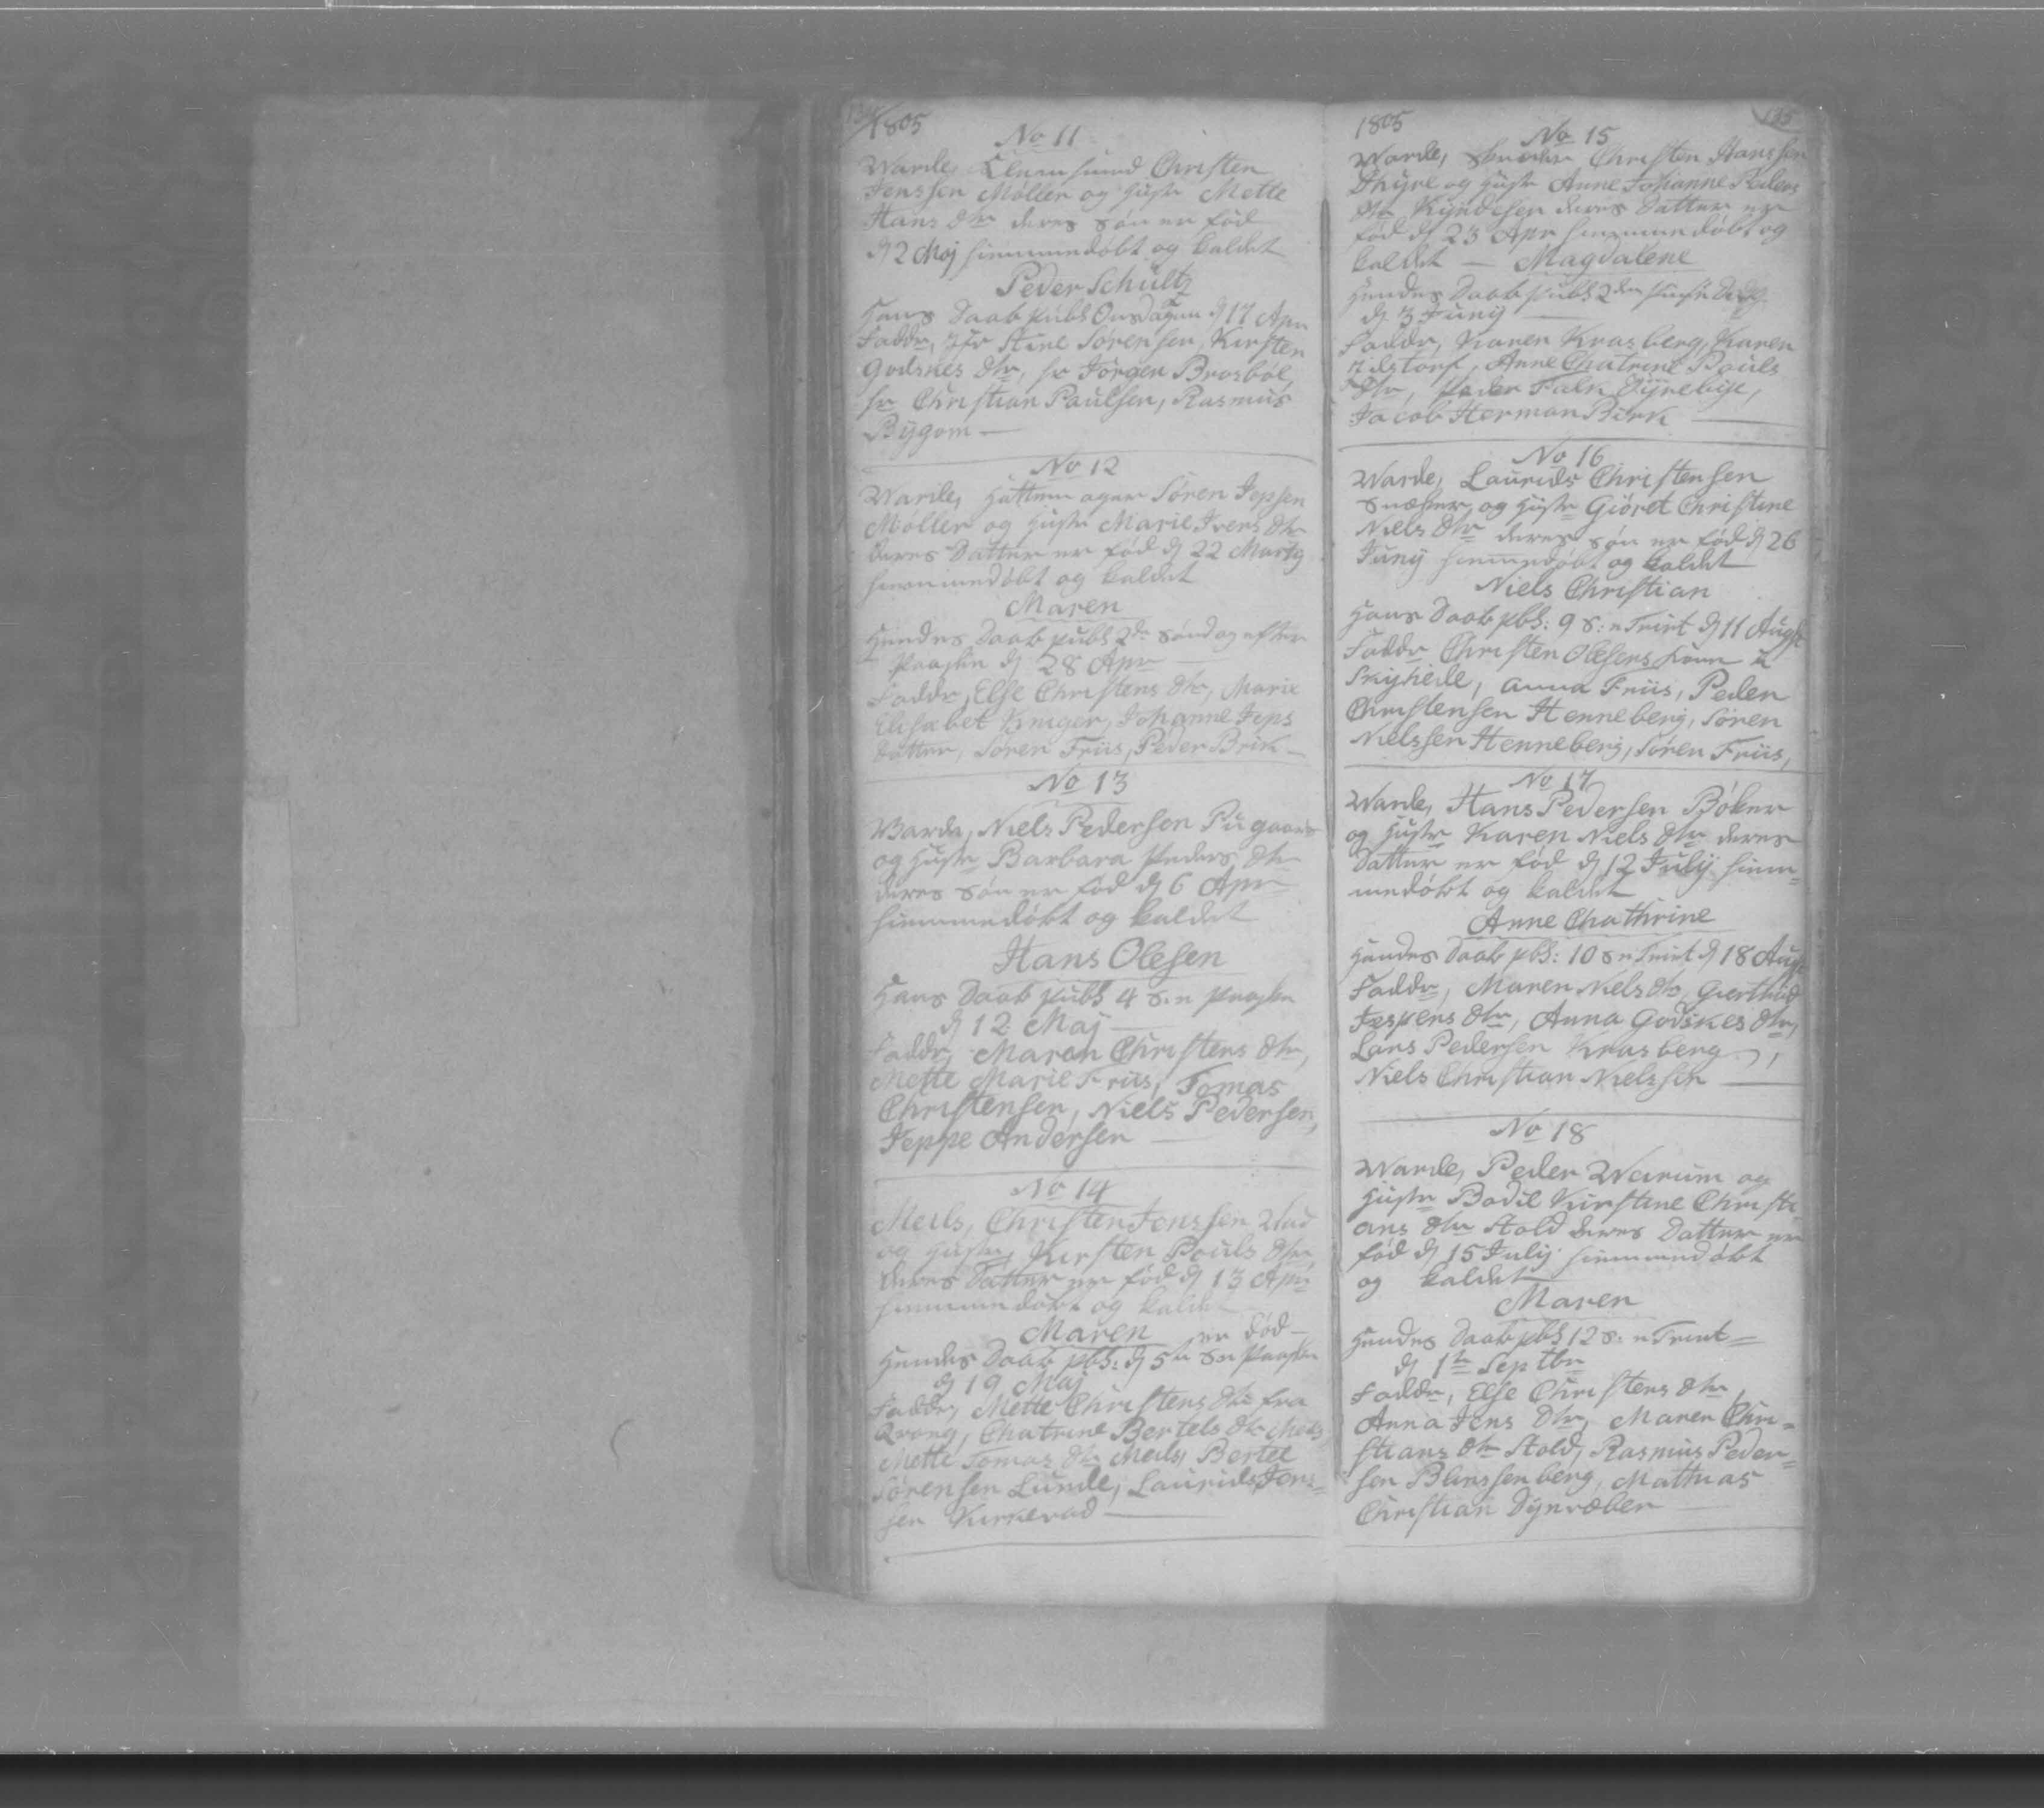 1805
No 11
Warde, Christen
Jenssen Møller og Hustr Mette
Hans Dtr deres Søn er fød
d 2 Maj hiemmedøbt og kaldet
Peder Schultz
Hans Daab publ Onsdagen d 17 Apr
Faddr, Jfr Stine Sørensen, Kirsten
Godskes Dtr, Hr Jørgen Brosbøl,
Hr Christian Paulsen, Rasmus
Bygom
No 12
Warde, Søren Jepsen
Møller og Hustr Marie Ivers Dtr
deres Datter er fød d 22 Martij
hiemmedøbt og kaldet
Maren
Hendes Daab publ 2den Søndag efter
Paasken d 28 Apr
Faddr, Else Christens Dtr, Marie
Elisabet Kryger, Johanne Jeps
Datter, Søren Friis, Peder Brik
No 13
Warde, Niels Pedersen Pugaard
og Hustr Barbara Peders Dtr
deres Søn er fød d 6 Apr
hiemmedøbt og kaldet
Hans Olesen
Hans Daab publ 4 S. e Paasken
d 12 Maj
Faddr, Maren Christens Dtr,
Mette Marie Friis, Tomas
Christensen, Niels Pedersen,
Jeppe Andersen
No 14
Meils, Christen Jenssen Wad
og Hustr, Kirsten Pouls Dtr
deres Datter er fød d 13 Apr
hiemmedøbt og kaldet
Maren er død
Hendes Daab pbl: d 5te S e Paasken
d 19 Maj
Faddr, Mette Christens Dtr fra
Qrong, Chatrine Bertels Dtr Meils,
Mette Tomas Dtr Meils, Bertel
Sørensen Lunde, Laurids Jens=
sen Kirkevad
1805 135
No 15
Warde, Christen Hanssen
Thyre og Hustr Anne Johanne Peders
Dtr Kyndesen deres Datter er
fød d 23 Apr hiemmedøbt og
kaldet — Magdalene
Hendes Daab publ 2den Pintse Dag
d 3 Junij
Faddr, Karen Krasberg, Karen
Anne Chatrine Pouls
Dtr, Peder Falk Dyreby,
Jacob Herman Birk
No 16
Warde, Laurids Christensen
og Hustr Giøret Christine
Niels Dtr deres Søn er fød d 26
Junij hiemmedøbt og kaldet
Niels Christian
Hans Daab pbl: 9 S: e Trint d 11 Augst
Faddr Christen Olesens Kone i
Skyhede, Anna Friis, Peder
Christensen Henneberg, Søren
Nielssen Henneberg, Søren Friis,
No 17
Warde, Hans Pedersen Bøker
og Hustr Karen Niels Dtr deres
Datter er fød d 12 Julij hiem=
medøbt og kaldet
Anne Chathrine
Hendes Daab pbl: 10 S e Trint d 18 Augst
Faddr, Maren Niels Dtr, Giertrud
Jespers Dtr, Anna Godskes Dtr,
Lars Pedersen Krasberg,
Niels Christian Nielssen
No 18
Warde, Peder Warum og
Hustr Bodil Kirstine Christi
ans Dtr Stold deres Datter er
fød d 15 Julij hiemmedøbt
og kaldet
Maren
Hendes Daab pbl 12 S. e Trint=
d 1te Septbr
Faddr, Else Christens Dtr,
Anna Jens Dtr, Maren Chri=
stians Dtr Stold, Rasmus Peder=
sen Blenssenberg, Mathias
Christian Dynvæber